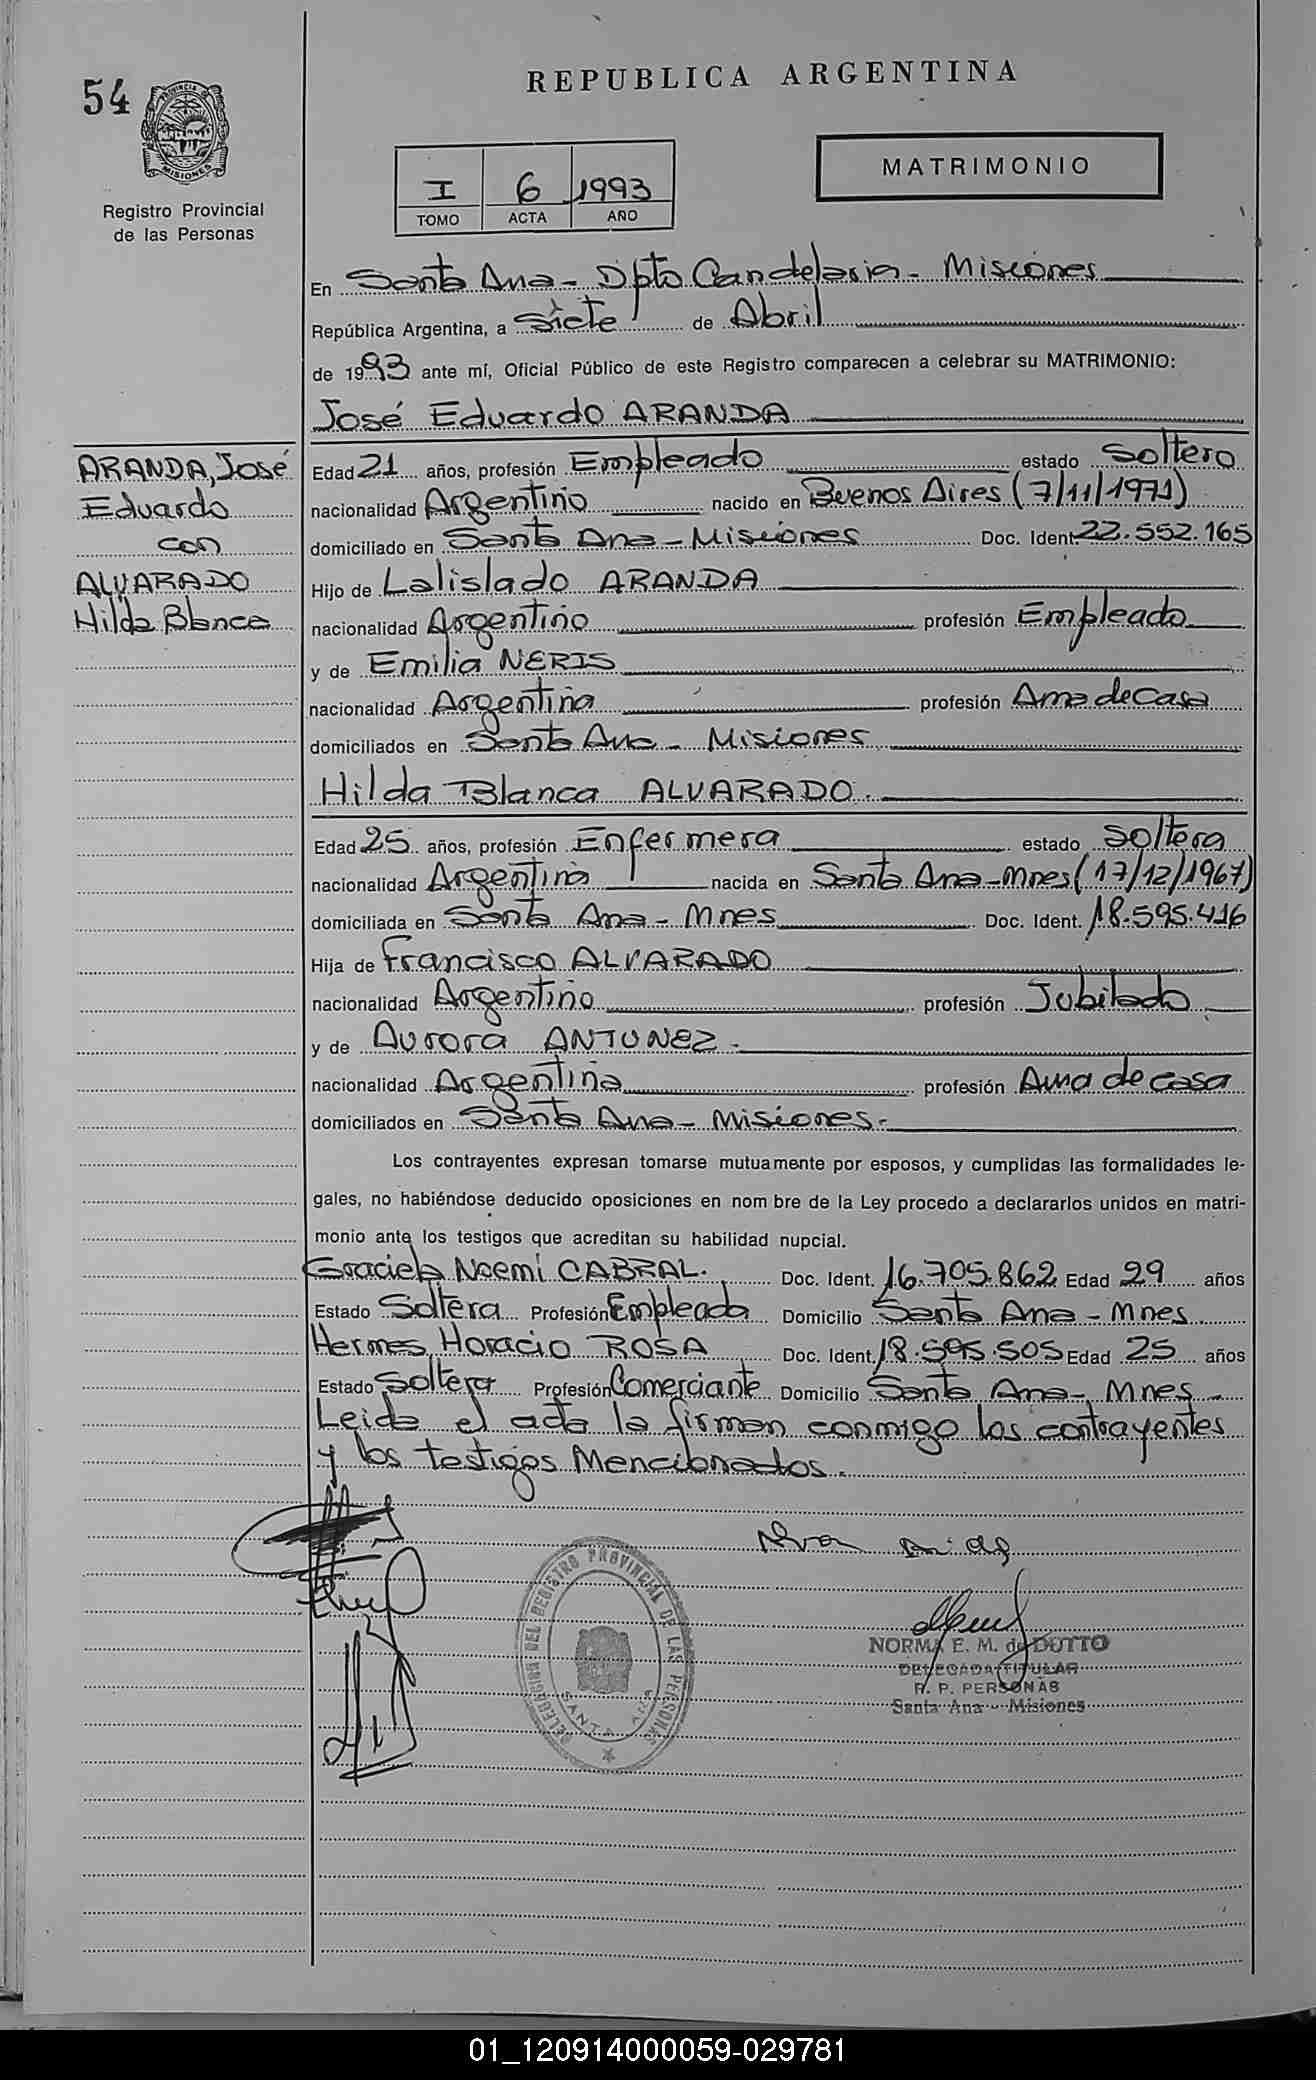 54
PROVINCIA DE
MISIONES
Registro Provincial
de las Personas
REPUBLICA ARGENTINA
I 6 1993
TOMO ACTA AÑO
MATRIMONIO
En Santa Ana - Dpto Candelaria - Misiones
República Argentina, a Siete de Abril
de 1993 ante mí, Oficial Público de este Registro comparecen a celebrar su MATRIMONIO:
José Eduardo ARANDA
ARANDA, José
Eduardo
con
ALVARADO
Hilda Blanca
Edad 21 años, profesión Empleado estado Soltero
nacionalidad Argentino nacido en Buenos Aires (7/11/1971)
domiciliado en Santa Ana - Misiones Doc. Ident 22.552.165
Hijo de Lalislado ARANDA
nacionalidad Argentino profesión Empleado
y de Emilia NERIS
nacionalidad Argentina profesión Ama de Casa
domiciliados en Santa Ana - Misiones
Hilda Blanca ALVARADO.
Edad 25 años, profesión Enfermera estado Soltera
nacionalidad Argentina nacida en Santa Ana - Mnes (17/12/1967)
domiciliada en Santa Ana - Mnes Doc. Ident. 18.595.416
Hija de Francisco ALVARADO
nacionalidad Argentino profesión Jubilado
y de Aurora ANTUNEZ.
nacionalidad Argentina profesión Ama de casa
domiciliados en Santa Ana - Misiones.
Los contrayentes expresan tomarse mutuamente por esposos, y cumplidas las formalidades le-
gales, no habiéndose deducido oposiciones en nom bre de la Ley procedo a declararlos unidos en matri-
monio ante los testigos que acreditan su habilidad nupcial.
Graciela Noemi CABRAL. Doc. Ident. 16.705.862 Edad 29 años
Estado Soltera Profesión Empleada Domicilio Santa Ana - Mnes
Hermes Horacio ROSA Doc. Ident. 18.595.505 Edad 25 años
Estado Soltero Profesión Comerciante Domicilio Santa Ana - Mnes
Leida el acta la firman conmigo los contrayentes
y los testigos Mencionados.
DELEGACION DEL REGISTRO PROVINCIAL DE LAS PERSONAS
SANTA ANA
NORMA E. M. de DUTTO
DELEGADA TITULAR
R. P. PERSONAS
Santa Ana - Misiones
01_120914000059-029781